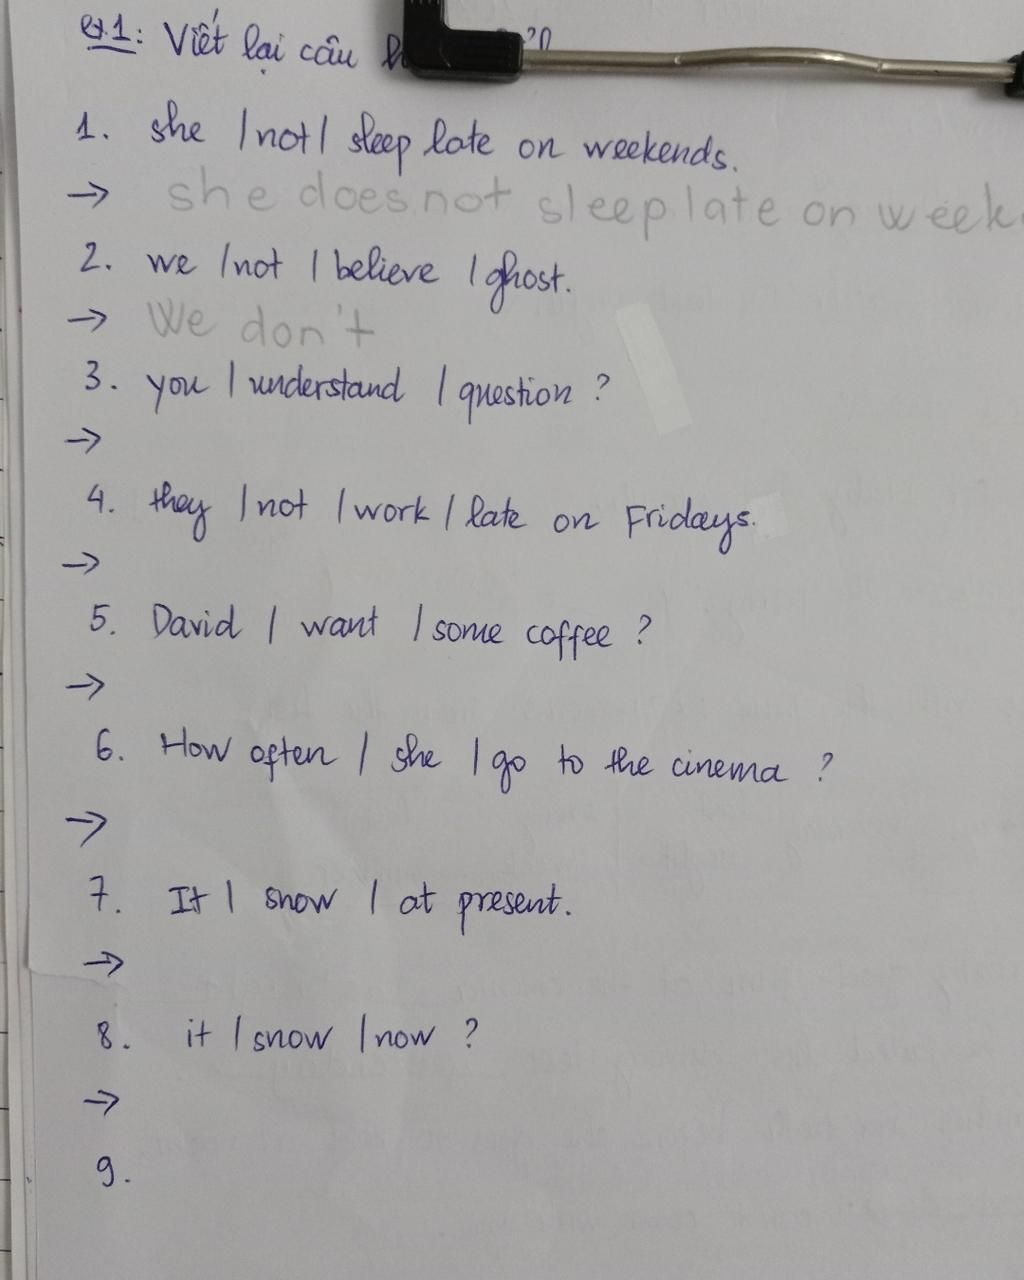 Ex.1: Viết lại câu
1. she / not / sleep late on weekends.
→ she does not sleep late on week
2. we / not / believe / ghost.
→ We don't
3. you / understand / question ?
→
4. they / not / work / late on Fridays.
→
5. David / want / some coffee ?
→
6. How often / she / go to the cinema ?
→
7. It / snow / at present.
→
8. it / snow / now ?
→
9.